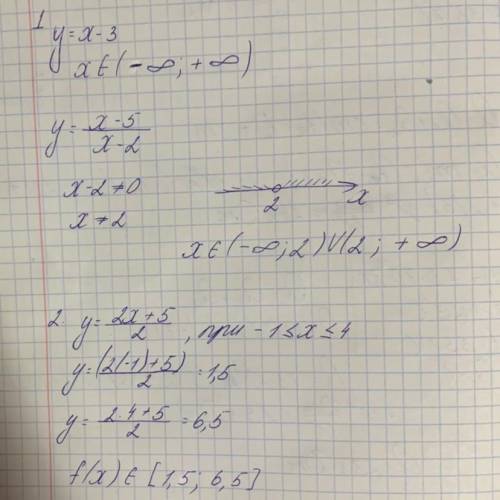 1 y = x - 3
x ∈ (- ∞; + ∞)
y = \frac{x-5}{x-2}
x - 2 ≠ 0
x ≠ 2
2 x
x ∈ (-∞; 2) U (2; + ∞)
2. y = \frac{2x+5}{2}, при -1 ≤ x ≤ 4
y = \frac{(2(-1)+5)}{2} = 1,5
y = \frac{2·4+5}{2} = 6,5
f(x) ∈ [1,5; 6,5]